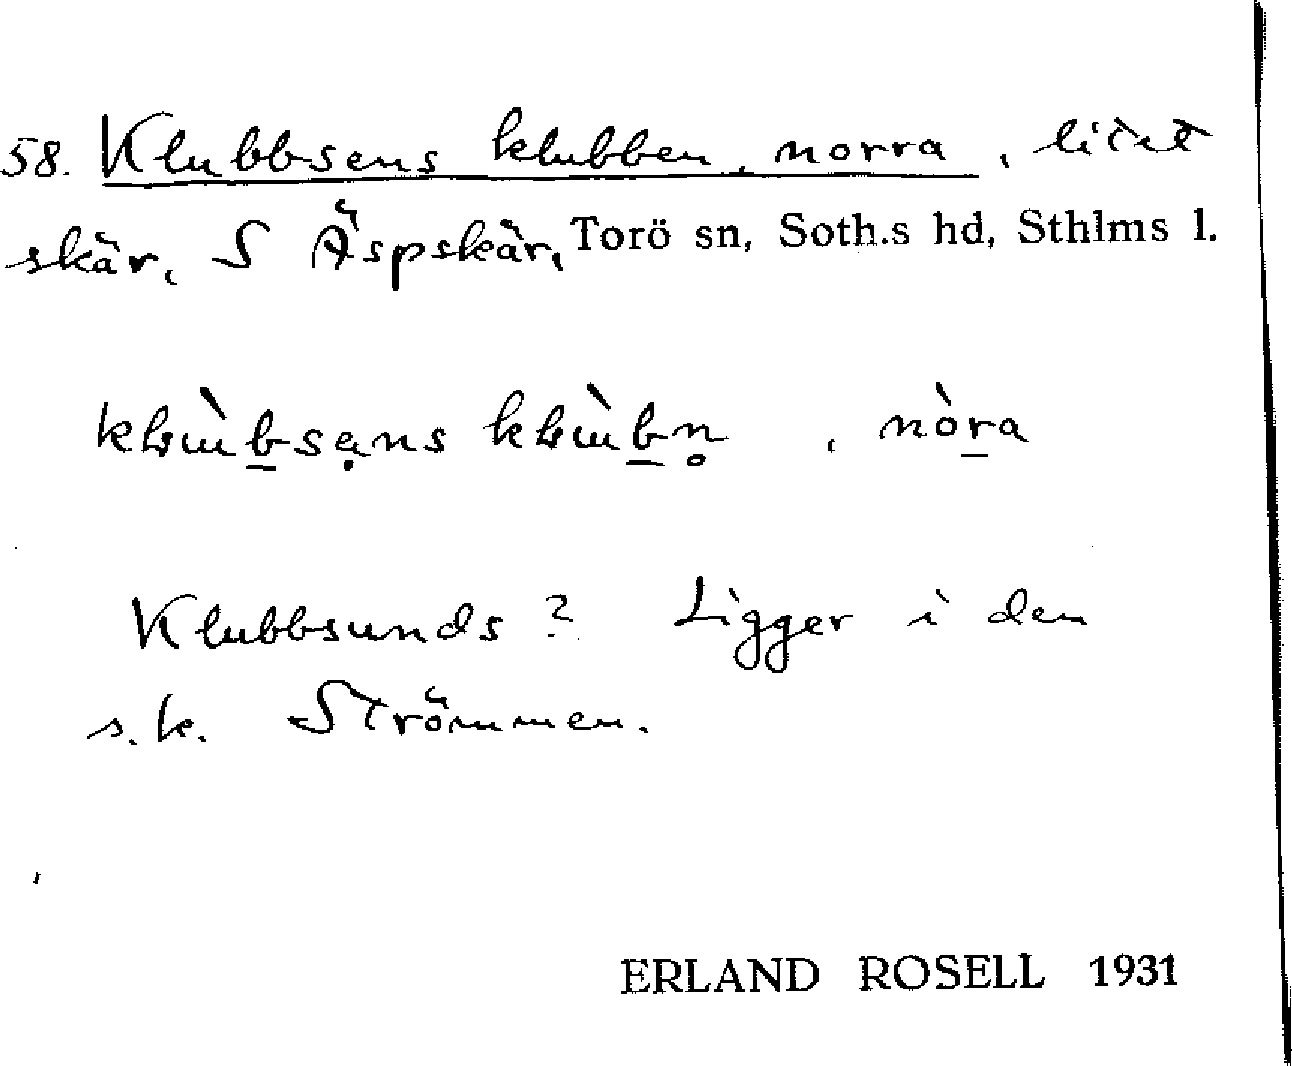 58. Klubbsens klubben, norra, litet
skär, S Äspskär, Torö sn, Soth.s hd, Sthlms l.
nòra
Klubbsunds? Ligger i den
s.k. Strömmen.
ERLAND ROSELL 1931